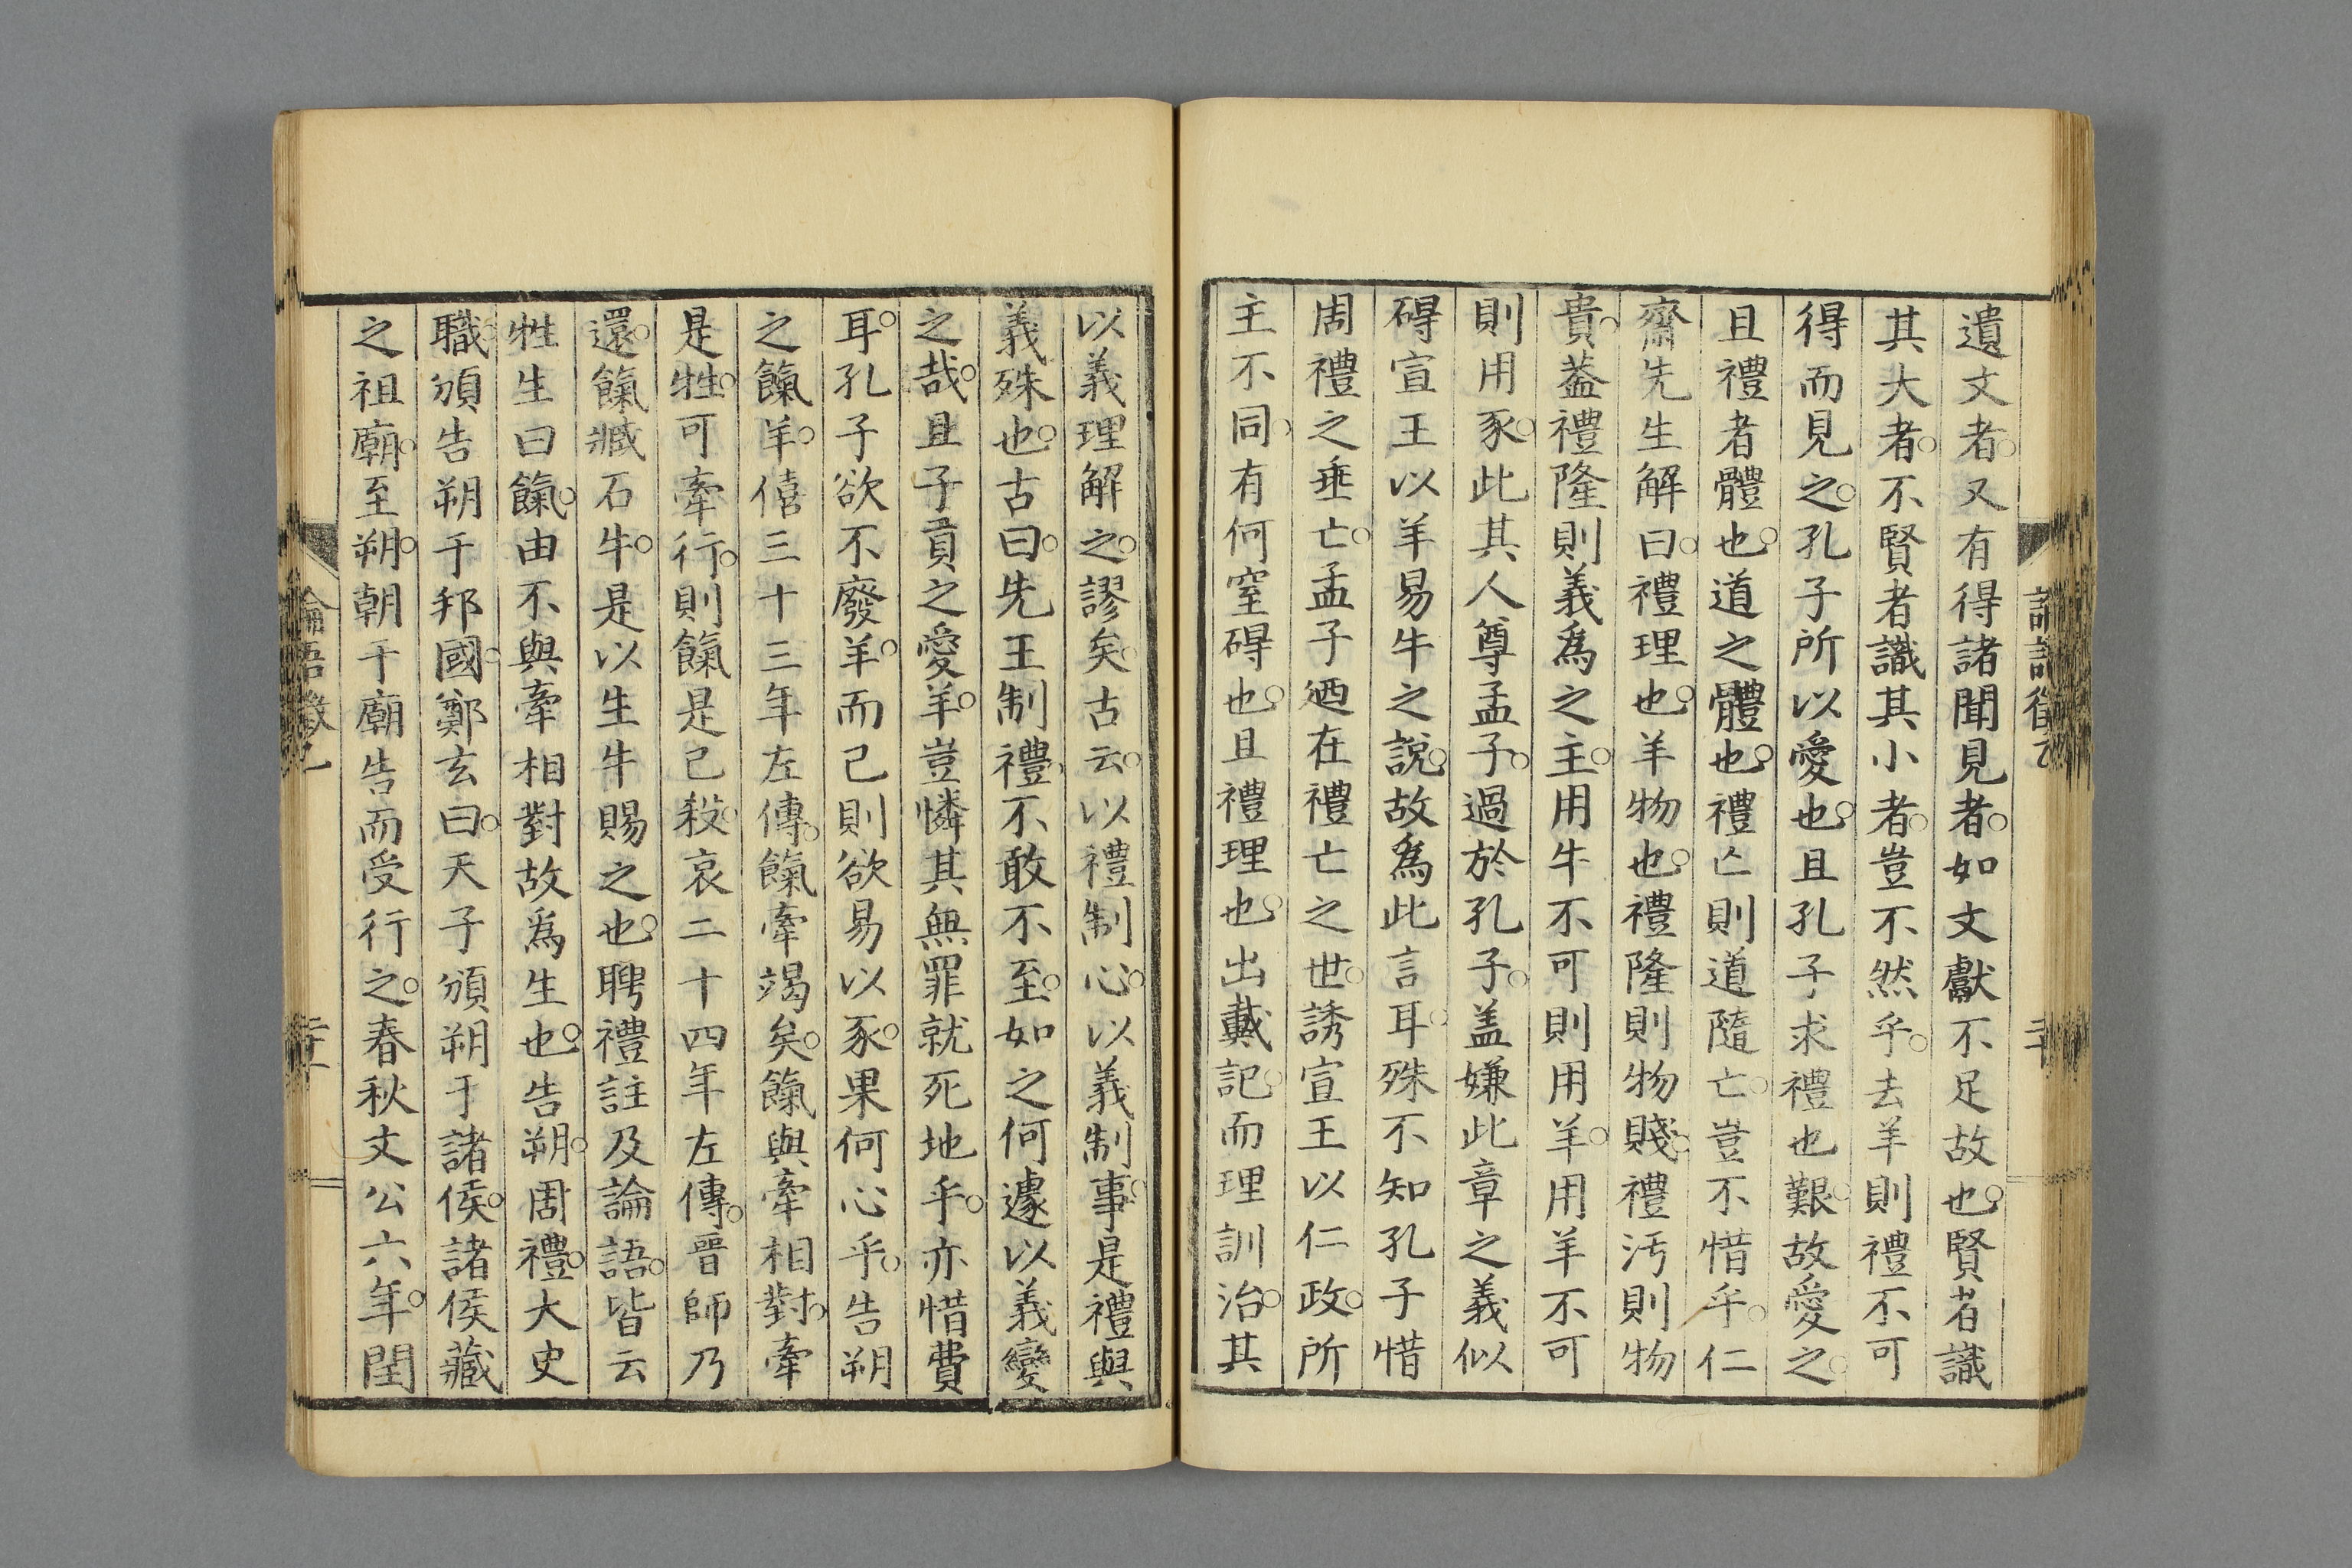 遺文者○又有得諸聞見者○如文獻不足故也○賢者識
其大者○不賢者識其小者○豈不然乎○去羊則禮不可
得而見之○孔子所以愛也○且孔子求禮也艱○故愛之○
且禮者體也○道之體也○禮亡則道隨亡○豈不惜乎○仁
齋先生解曰○禮理也○羊物也○禮隆則物賤○禮汚則物
貴○蓋禮隆則義爲之主○用牛不可則用羊○用羊不可
則用豕○此其人尊孟子○過於孔子○盖嫌此章之義似
碍宣王以羊易牛之說○故爲此言耳○殊不知孔子惜
周禮之垂亡○孟子廼在禮亡之世○誘宣王以仁政○所
主不同○有何窒碍也○且禮理也○出戴記○而理訓治○其
以義理解之○謬矣○古云○以禮制心○以義制事○是禮與
義殊也○古曰○先王制禮○不敢不至○如之何遽以義變
之哉○且子貢之愛羊○豈憐其無罪就死地乎○亦惜費
耳○孔子欲不廢羊○而己則欲易以豕○果何心乎○告朔
之餼羊○僖三十三年左傳○餼牽竭矣○餼與牽相對○牽
是牲○可牽行○則餼是已殺○哀二十四年左傳○晉師乃
還○餼臧石牛○是以生牛賜之也○聘禮註及論語○皆云
牲生曰餼○由不與牽相對故爲生也○告朔○周禮○大史
職○頒告朔于邦國○鄭玄曰○天子頒朔于諸侯○諸侯藏
之祖廟○至朔○朝于廟告而受行之○春秋文公六年○閏
論語徵乙